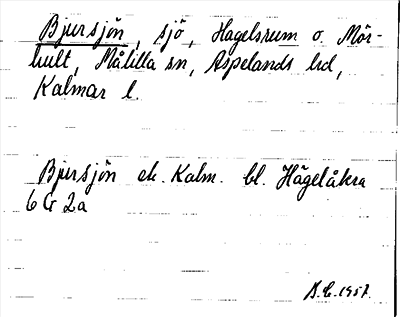 Bjursjön, sjö, Hagelsrum o. Mör-
hult, Målilla sn, Aspelands hd,
Kalmar l.
Bjursjön ek. Kalm. bl. Hägelåkra
6 G 2a
B.C. 1957.